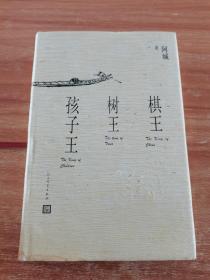 阿城
棋王
The King of
Chess
树王
The King of
Trees
孩子王
The King of
Children